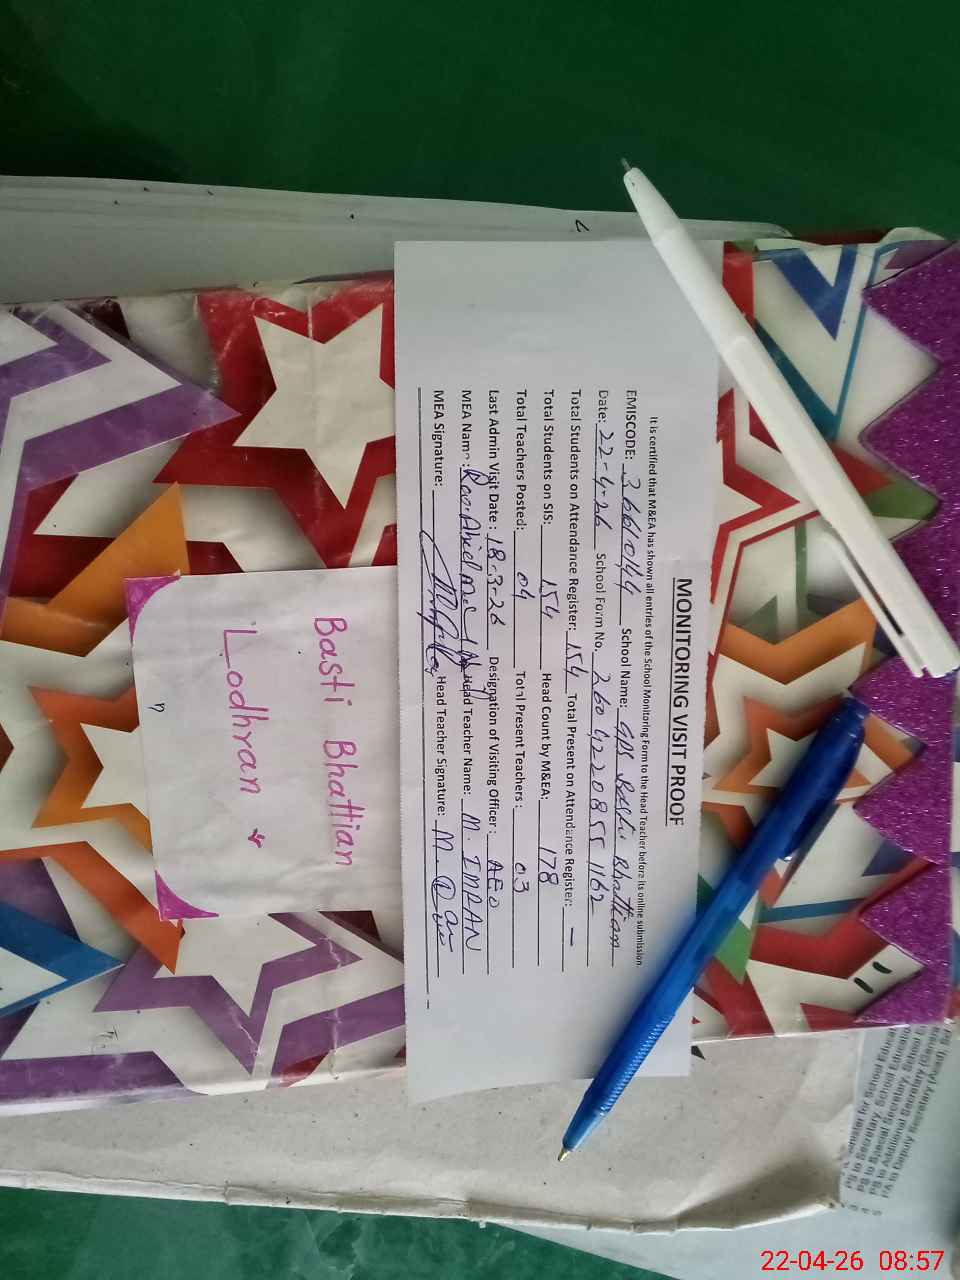 MONITORING VISIT PROOF
It is certified that M&EA has shown all entries of the School Monitoring Form to the Head Teacher before its online submission
EMISCODE: 3661044 School Name: GPS Basti Bhattian
Date: 22-4-26 School Form No. 26042208551162
Total Students on Attendance Register: 154 Total Present on Attendance Register: –
Total Students on SIS: 154 Head Count by M&EA: 178
Total Teachers Posted: 04 Total Present Teachers: 03
Last Admin Visit Date: 18-3-26 Designation of Visiting Officer: AEO
MEA Name: Head Teacher Name: M. IMRAN
MEA Signature: Head Teacher Signature: M.
Basti Bhattian
Lodhran
PS to Secretary, School Educat
PS to Special Secretary, School
PS to Additional Secretary (General
PA to Deputy Secretary (Acad), Sch
22-04-26 08:57